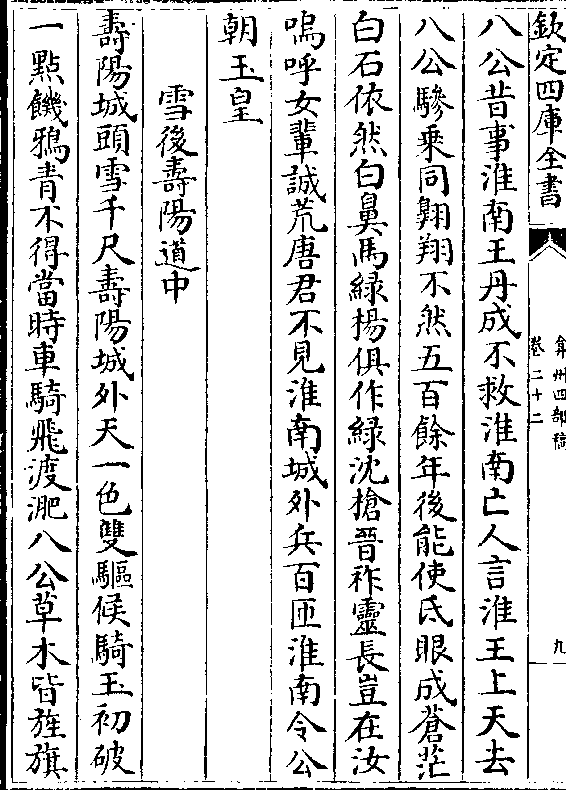 欽定四庫全書
弇州四部稿
卷二十二
九
八公昔事淮南王丹成不救淮南亡人言淮王上天去
八公驂乘同翺翔不然五百餘年後能使氐眼成蒼茫
白石依然白鼻馬綠楊俱作綠沈槍晉祚靈長豈在汝
嗚呼女輩誠荒唐君不見淮南城外兵百匝淮南令公
朝玉皇
雪後壽陽道中
壽陽城頭雪千尺壽陽城外天一色雙驅候騎玉初破
一點饑鴉青不得當時車騎飛渡淝八公草木皆旌旗